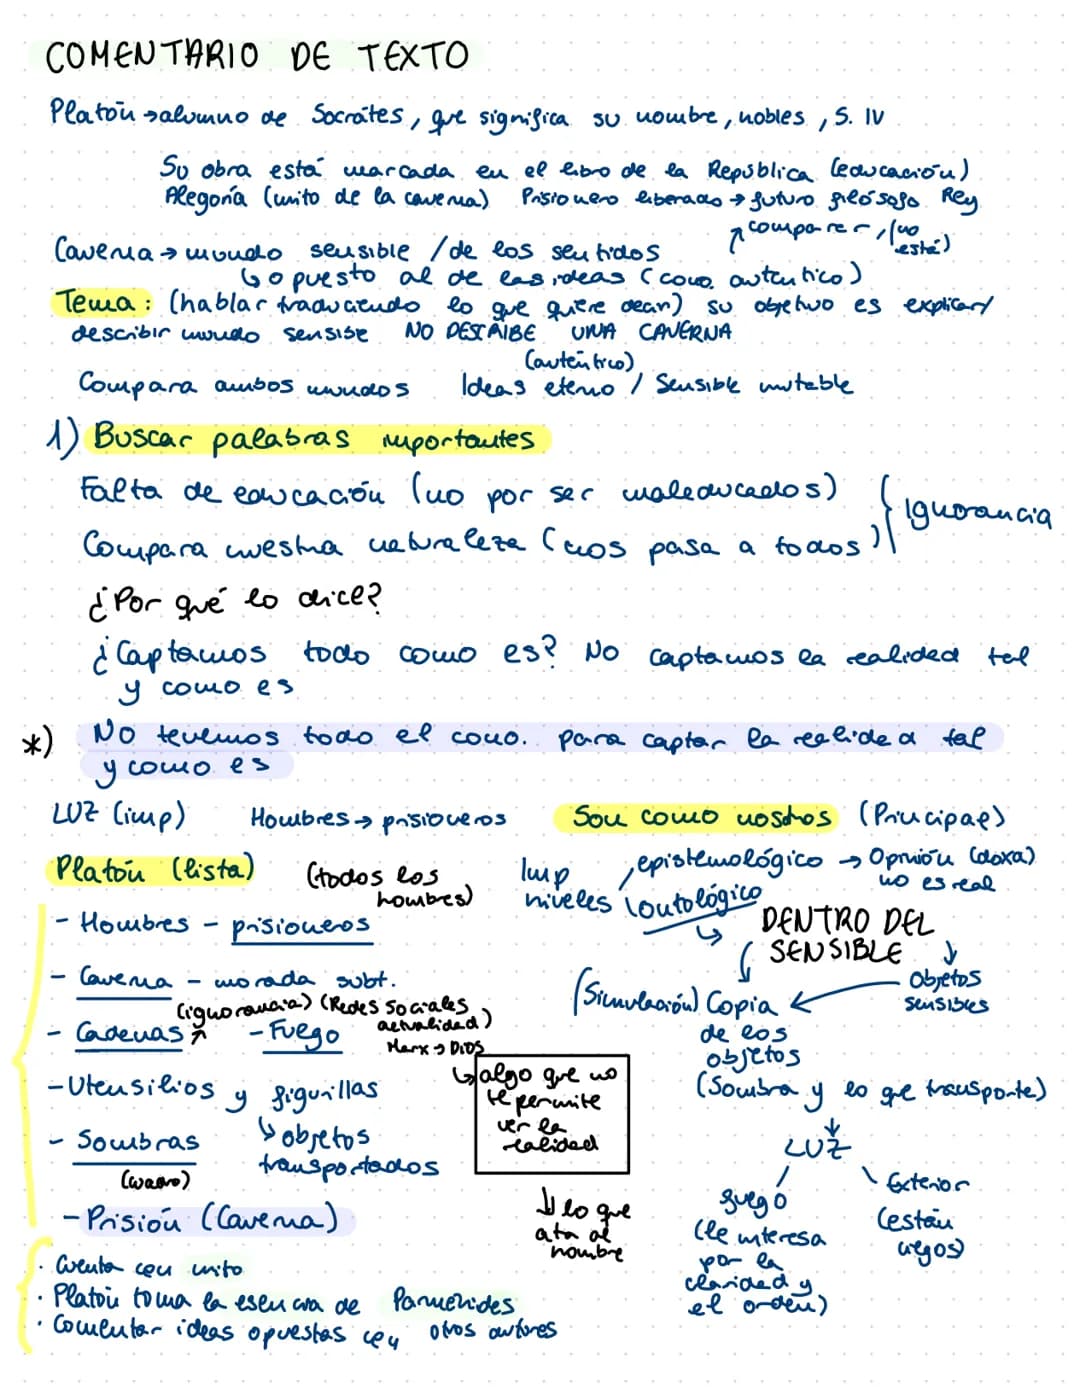 COMENTARIO DE TEXTO
Platón → alumno de Socrátes, que significa su nombre, nobles, S. IV
Su obra está marcada en el libro de la República (educación)
Alegoría (mito de la caverna) Prisionero liberado → futuro filósofo Rey
comparer, (no está)
Caverna → mundo sensible / de los sentidos
↳ opuesto al de las ideas (cono. autentico)
Tema: (hablar traduciendo lo que quiere decir) su objetivo es explicar/
describir mundo sensible NO DESCRIBE UNA CAVERNA
(auténtico)
Compara ambos mundos Ideas eterno / Sensible mutable
1) Buscar palabras importantes
Falta de educación (no por ser maleducados)
Compara nuestra naturaleza (nos pasa a todos)
Ignorancia
¿Por qué lo dice?
¿Captamos todo como es? No captamos la realidad tal
y como es
*) No tenemos todo el cono. para captar la realidad tal
y como es
LUZ (imp) Hombres → prisioneros Son como nosotros (Principal)
Platón (lista) (todos los hombres)
Imp niveles
epistemológico → Opinión (doxa)
no es real
ontológico
↳ DENTRO DEL
SENSIBLE
- Hombres - prisioneros
- Caverna - morada subt.
(ignorancia) (Redes Sociales actualidad)
- Cadenas - Fuego
Marx → DIOS
↳ algo que no
te permite
ver la
realidad
- Utensilios y figurillas
↳ objetos
transportados
- Sombras
- Prisión (Caverna)
⇓ lo que
ata al
hombre
Objetos
sensibles
(Simulación) Copia ←
de los
objetos
(Sombra y lo que transporte)
↓
LUZ
fuego
(le interesa
por la
claridad y
el orden)
Exterior
(están
ciegos)
· Cuenta con mito
· Platón toma la esencia de Parménides
· Comentar ideas opuestas con otros autores